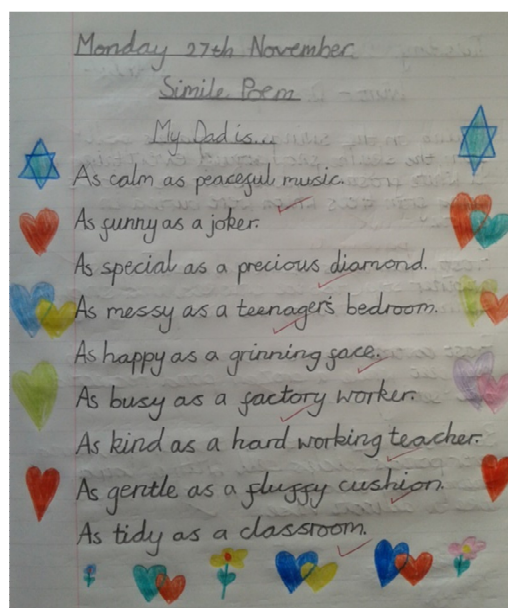 Monday 27th November
Simile Poem
My Dad is...
As calm as peaceful music.
As funny as a joker.
As special as a precious diamond.
As messy as a teenager's bedroom.
As happy as a grinning face.
As busy as a factory worker.
As kind as a hard working teacher.
As gentle as a fluffy cushion.
As tidy as a classroom.